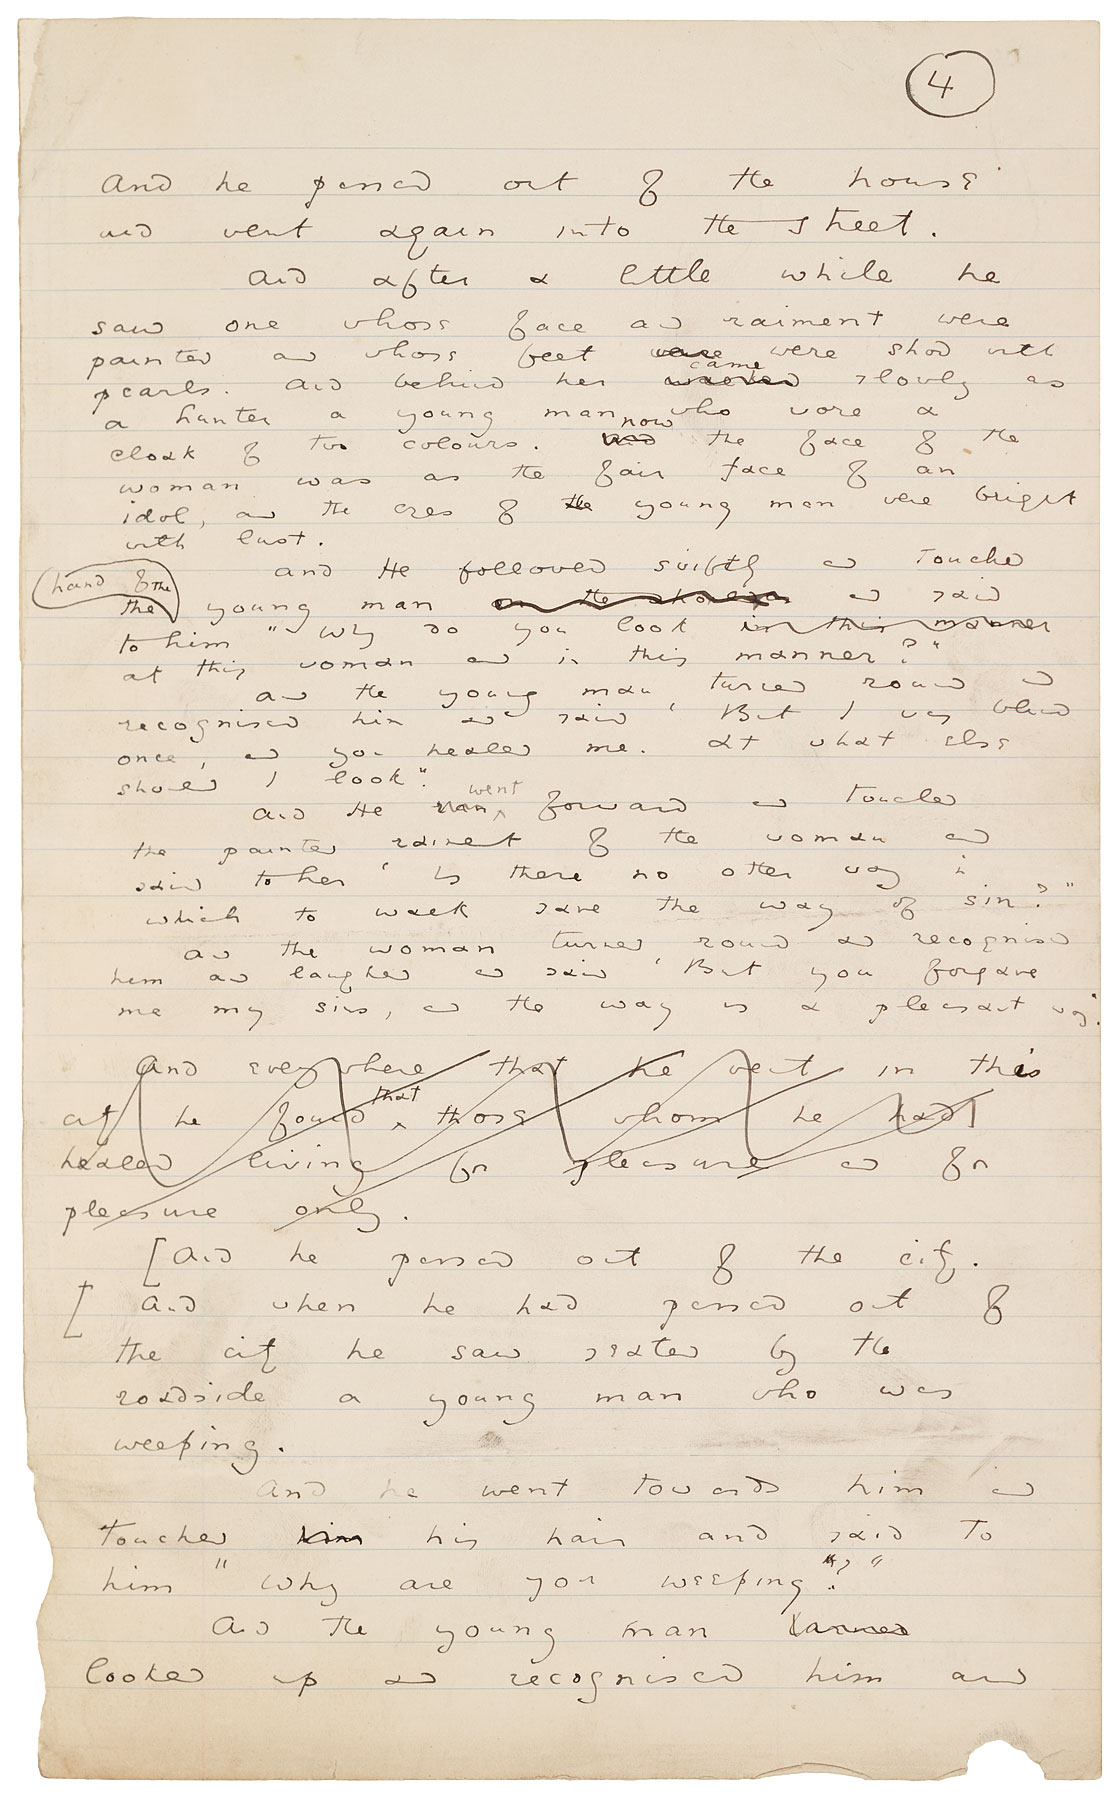 4
And he passed out of the house
and went again into the street.
And after a little while he
saw one whose face and raiment were
painted and whose feet were were shod with
came
pearls. And behind her walked slowly as
a hunter a young man who wore a
now
cloak of two colours. And the face of the
woman was as the fair face of an
idol, and the eyes of the young man were bright
with lust.
And He followed swiftly and touched
hand of the
the young man on the shoulder and said
to him "Why do you look in this manner
at this woman and in this manner?"
And the young man turned round and
recognised him and said 'But I was blind
once, and you healed me. At what else
should I look".
went
And He ran forward and touched
the painted raiment of the woman and
said to her 'Is there no other way in
which to walk save the way of sin?"
And the woman turned round and recognised
him and laughed and said 'But you forgave
me my sins, and the way is a pleasant way.'
And everywhere that he went in this
that
city he found those whom he had
healed living for pleasure and for
pleasure only.
[And he passed out of the city.
[And when he had passed out of
the city he saw seated by the
roadside a young man who was
weeping.
And he went towards him and
touched him his hair and said to
him "Why are you weeping?"
And the young man
looked up and recognised him and